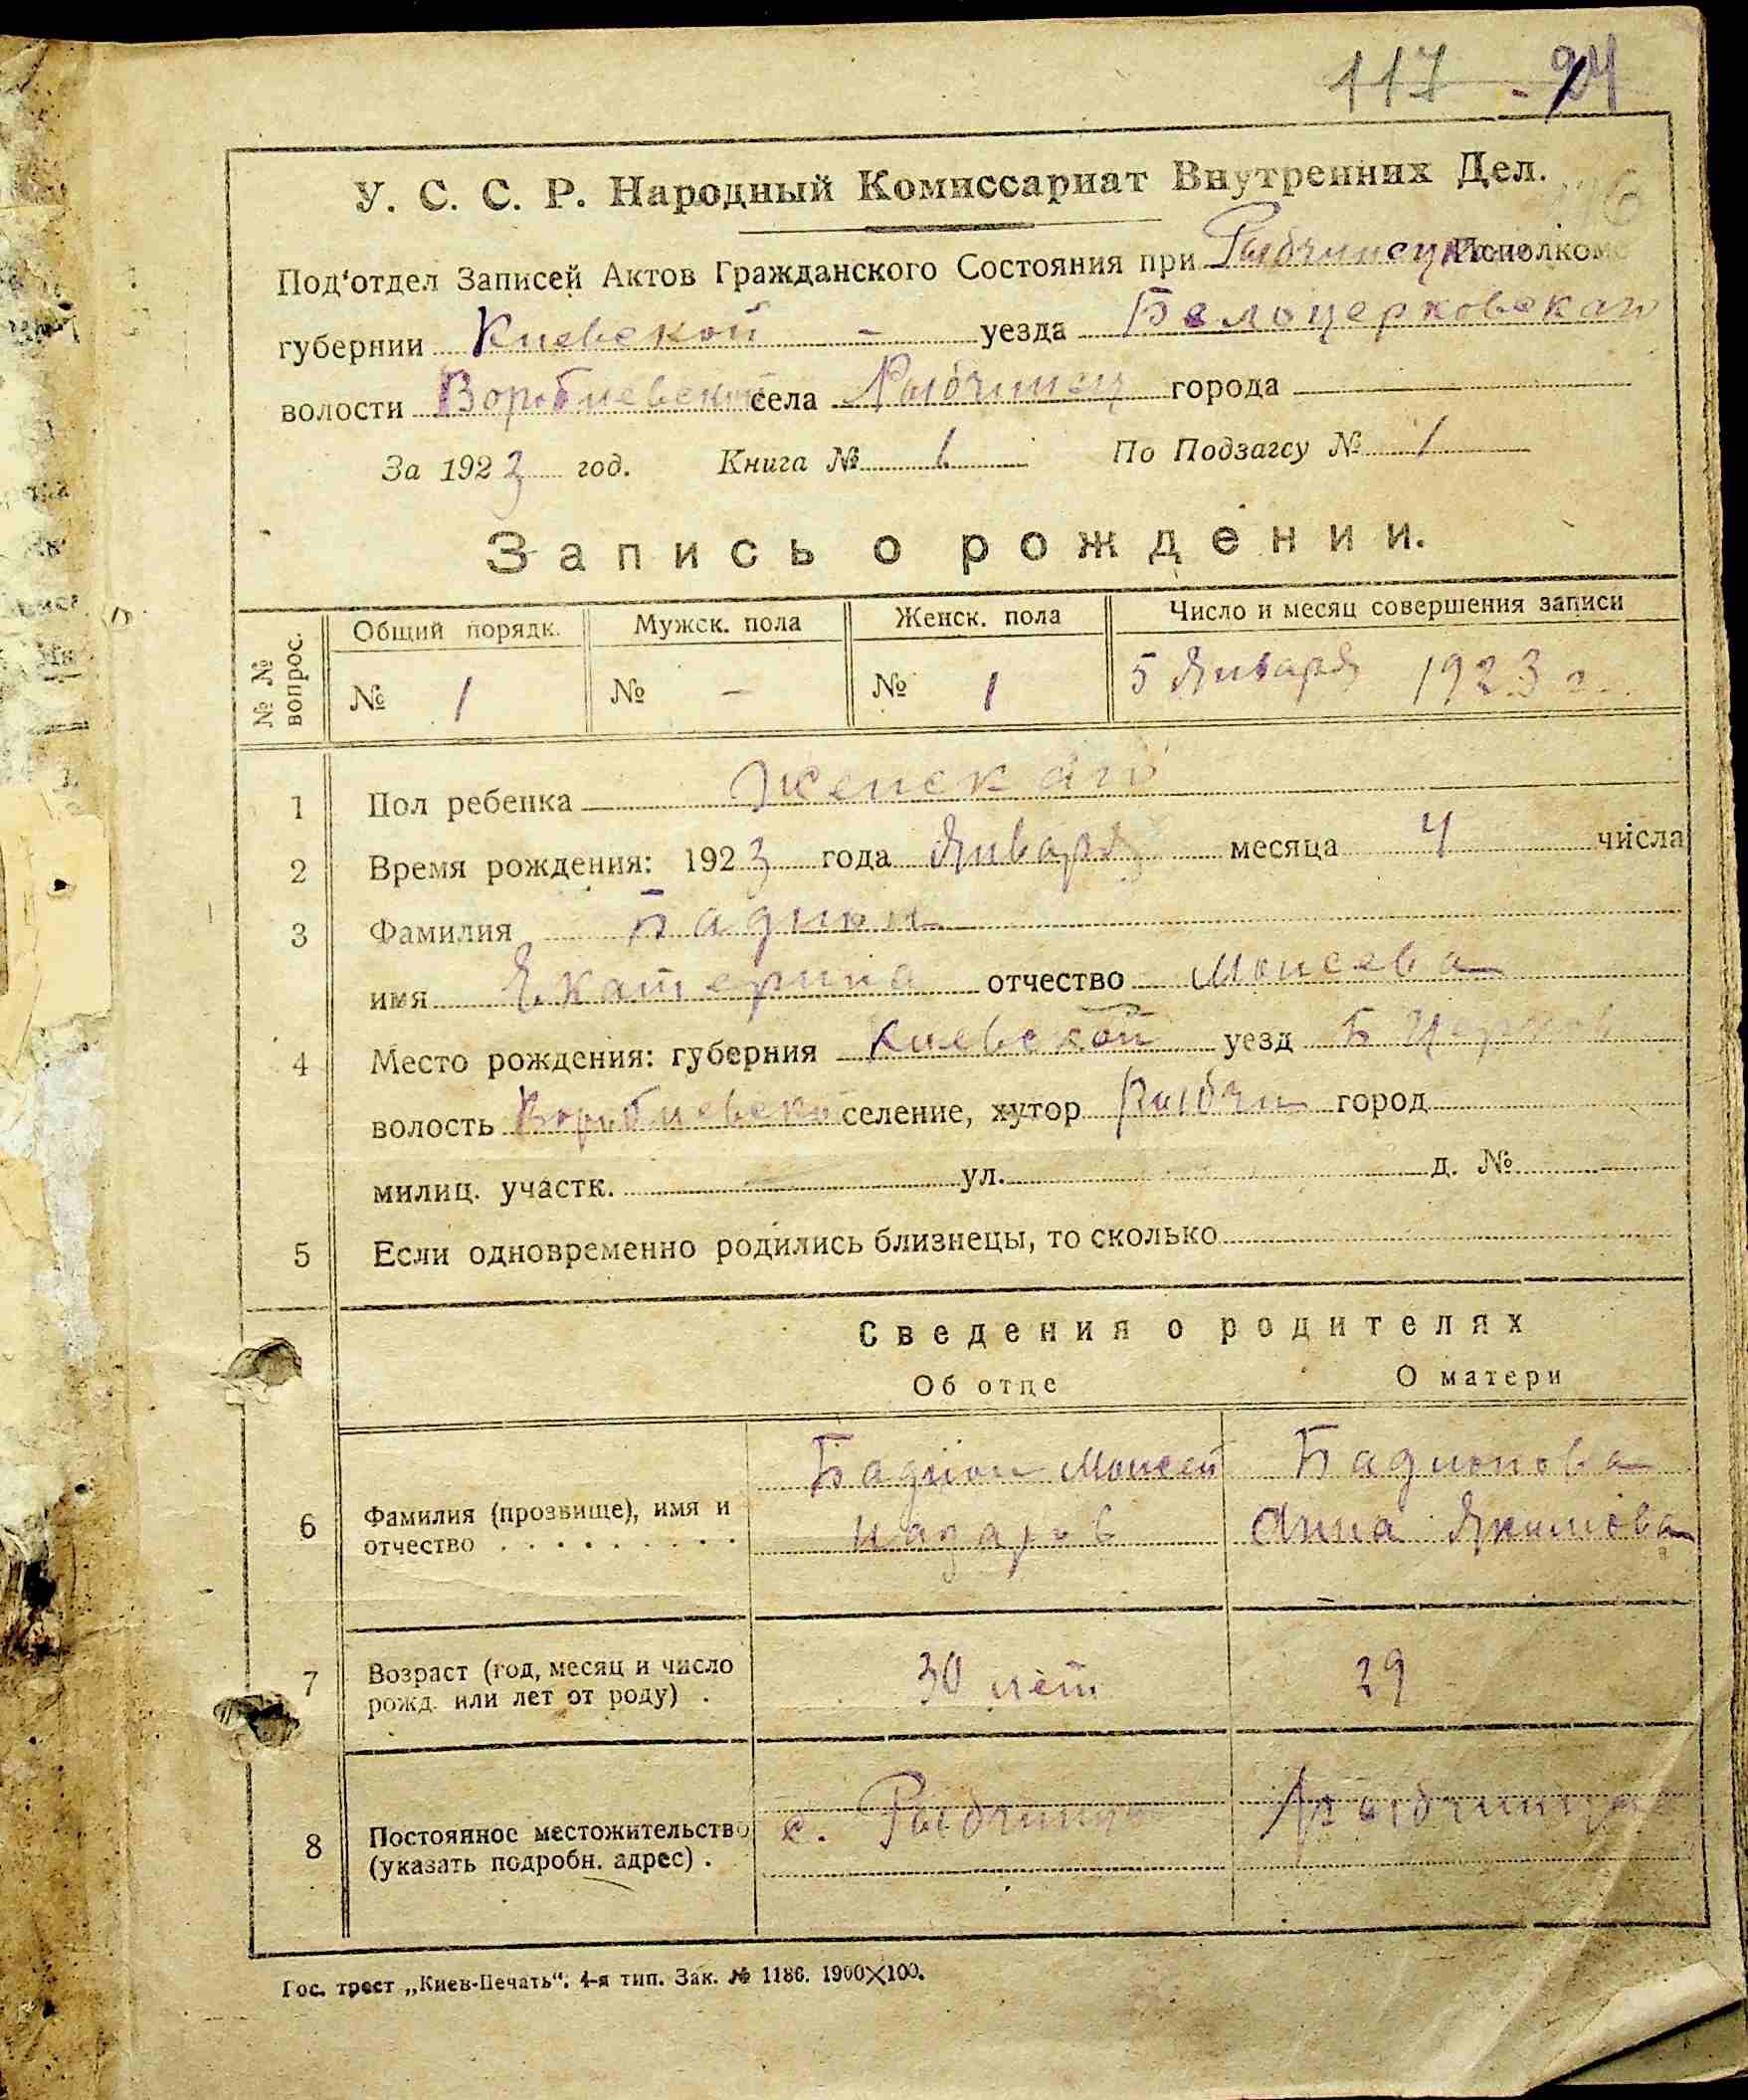 117 - 94
У. С. С. Р. Народный Комиссариат Внутренних Дел.
Под'отдел Записей Актов Гражданского Состояния при Исполкоме
губернии Киевской - уезда Белоцерковскаго
волости Воробиевской села Рыбчинец города
За 1923 год. Книга № 1 По Подзагсу № 1
Запись о рождении.
№ № вопрос. Общий порядк. Мужск. пола Женск. пола Число и месяц совершения записи
№ 1 № – № 1 5 Января 1923 г.
1 Пол ребенка женскаго
2 Время рождения: 1923 года Января месяца 4 числа
3 Фамилия Бадион
имя Екатерина отчество Моисеева
4 Место рождения: губерния Киевской уезд Б Церков
волость Воробиевской селение, хутор Рыбчи город
милиц. участк. ул. д. №
5 Если одновременно родились близнецы, то сколько
Сведения о родителях
Об отце О матери
Бадион Моисей Бадионова
6 Фамилия (прозвище), имя и
отчество . . . . . . . . . . Назаров Анна Якимова
7 Возраст (год, месяц и число
рожд. или лет от роду) . 30 лет 29
8 Постоянное местожительство
(указать подробн. адрес) . с. Рыбчинцы Рыбчинцы
Гос. трест „Киев-Печать“. 4-я тип. Зак. № 1186. 1900×100.